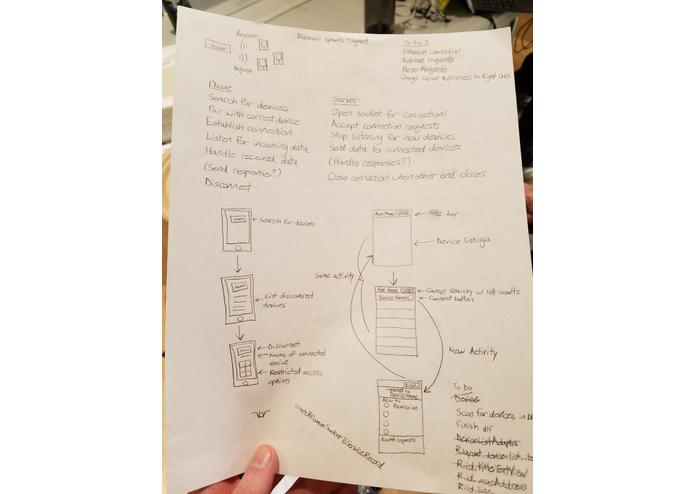 Request
Server
Request
To Do:
Establish Connection
Retrieve requests
Parse Requests
Change Layout References to Right Ones
Phone
Search for devices
Pair with correct device
Establish connection
Listen for incoming data
Handle received data
(Send response?)
Disconnect
Server
Open socket for connections
Accept connection requests
Stop listening for new devices
Send data to connected devices
(Handle responses?)
Close connection when other end closes
Search for devices
List discovered
devices
Disconnect
Name of connected
device
Restricted access
options
App Name
Title bar
Device listings
Same activity
App Name
Device Name
Cancel search w/ list results
Connect button
New Activity
Device Name
Permission
Recent requests
To Do
Device
Scan for devices in
Finish
DeviceListAdapter
R.layout.device_list_
R.id.titleTextView
R.id.macAddress
R.id.